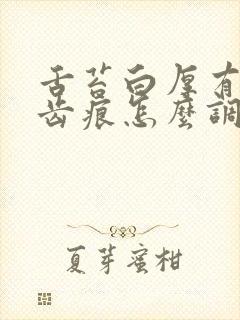 舌苔白厚有
齿痕怎麼調
夏芽蜜柑